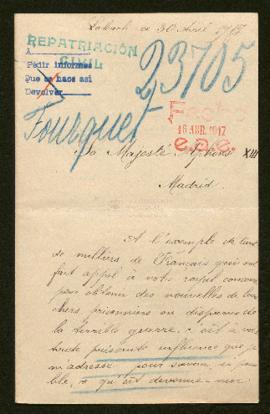 REPATRIACIÓN
CIVIL
A
Pedir informes
Que se hace así
Devolver
23705
Fourquet
16 ABR. 1917
Sa Majesté Alphonse XIII
Madrid
A l'exemple de tant
de milliers de Français qui ont
fait appel à votre royal concours
pour obtenir des nouvelles de leurs
chers prisonniers ou disparus de
la terrible guerre, c'est à votre
puissante influence que je
m'adresse pour savoir, si
possible, ce qu'est devenu mon